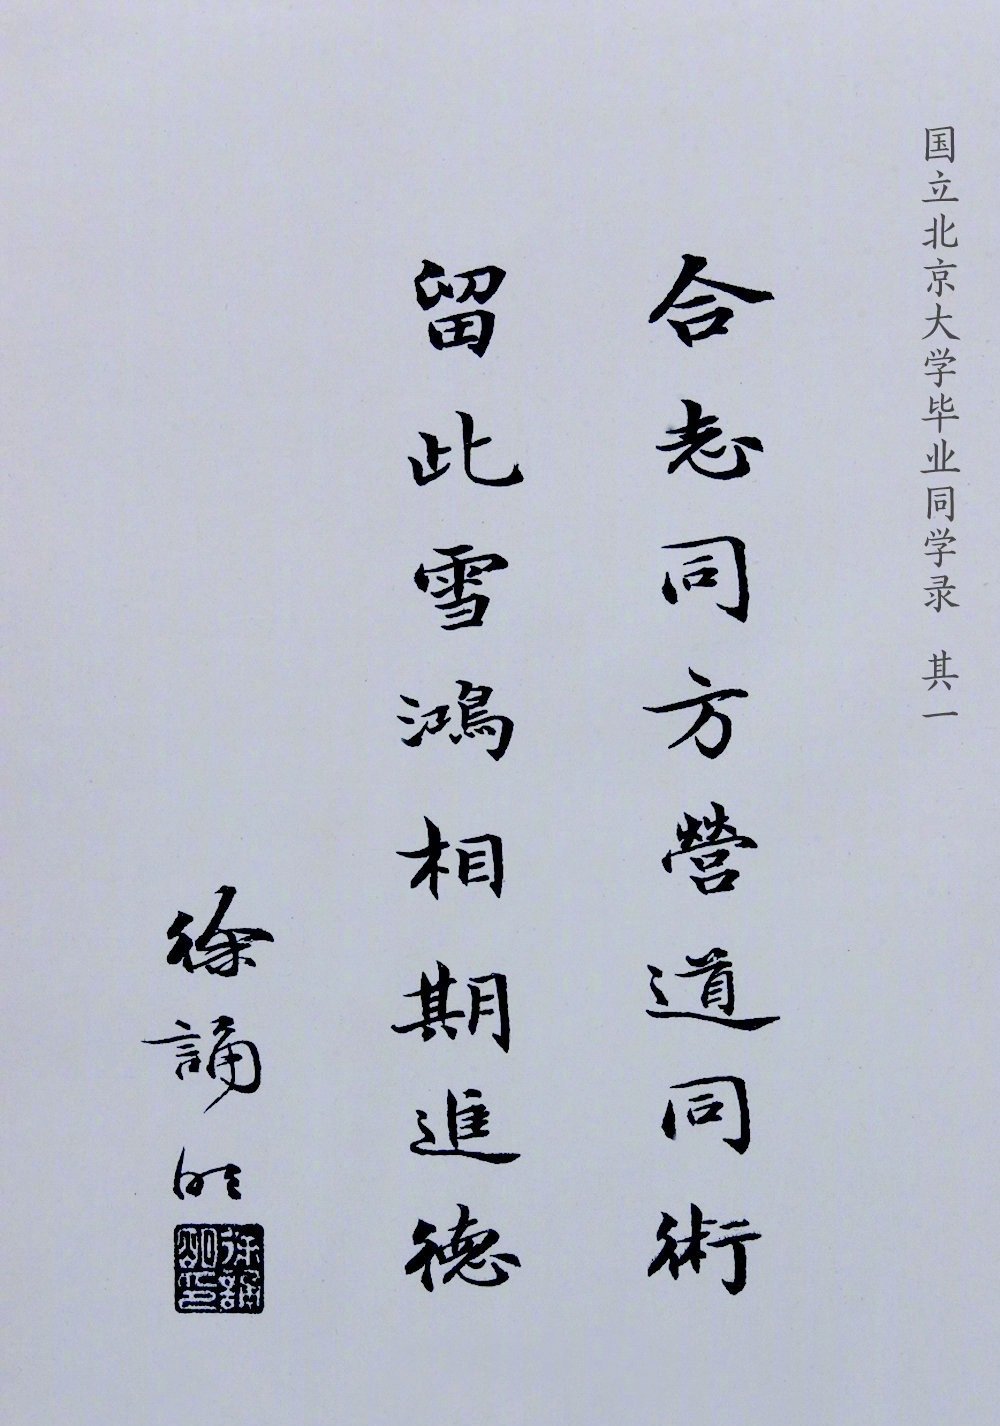 国立北京大学毕业同学录 其一
合志同方營道同術
留此雪鴻相期進德
徐誦明
徐誦明印